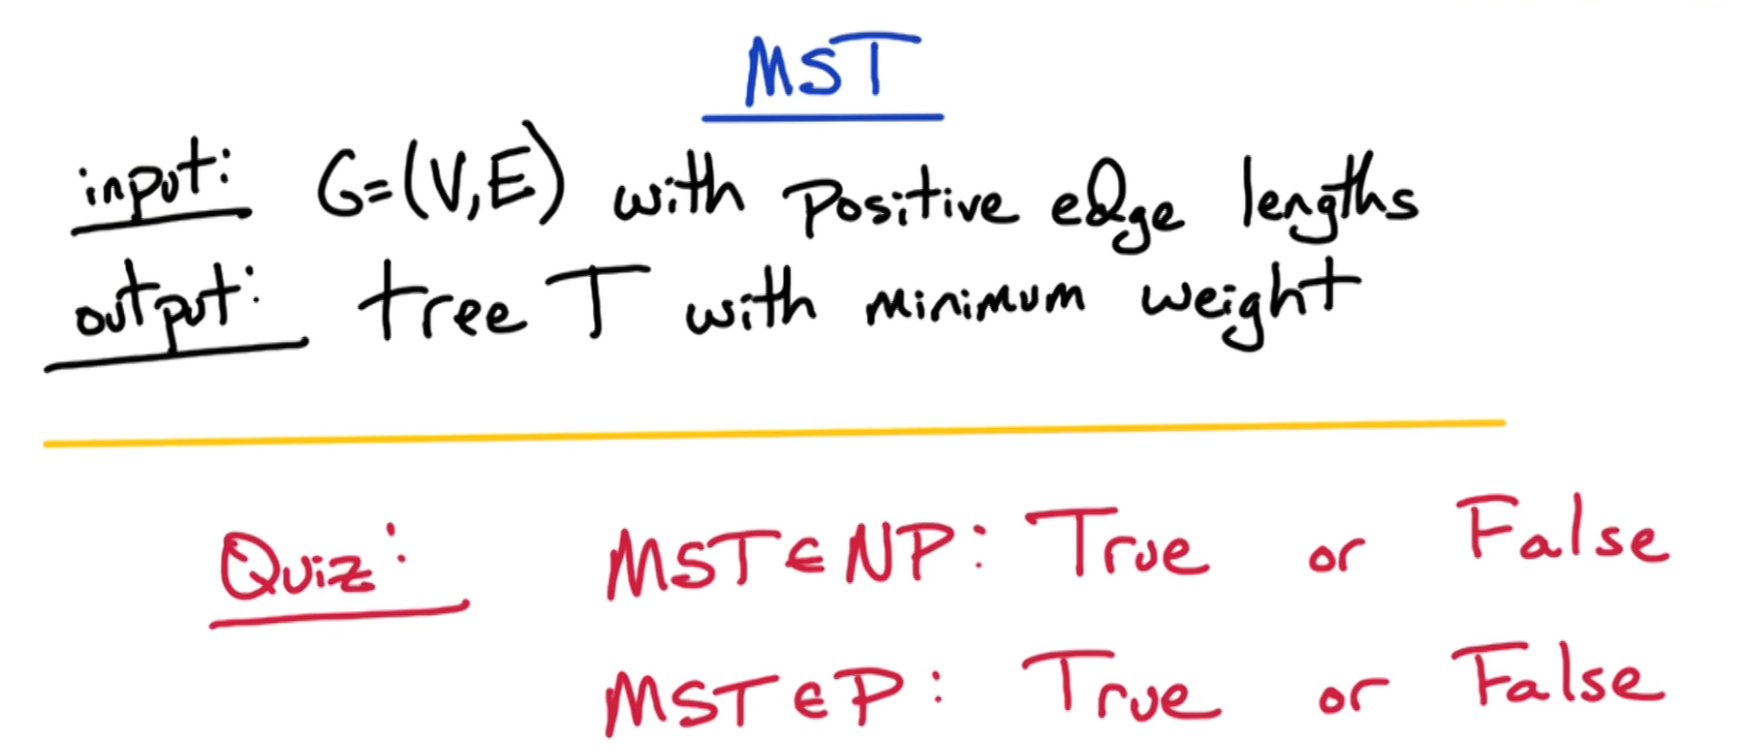 MST
input: G=(V,E) with positive edge lengths
output: tree T with minimum weight
Quiz: MST∈NP: True or False
MST∈P: True or False